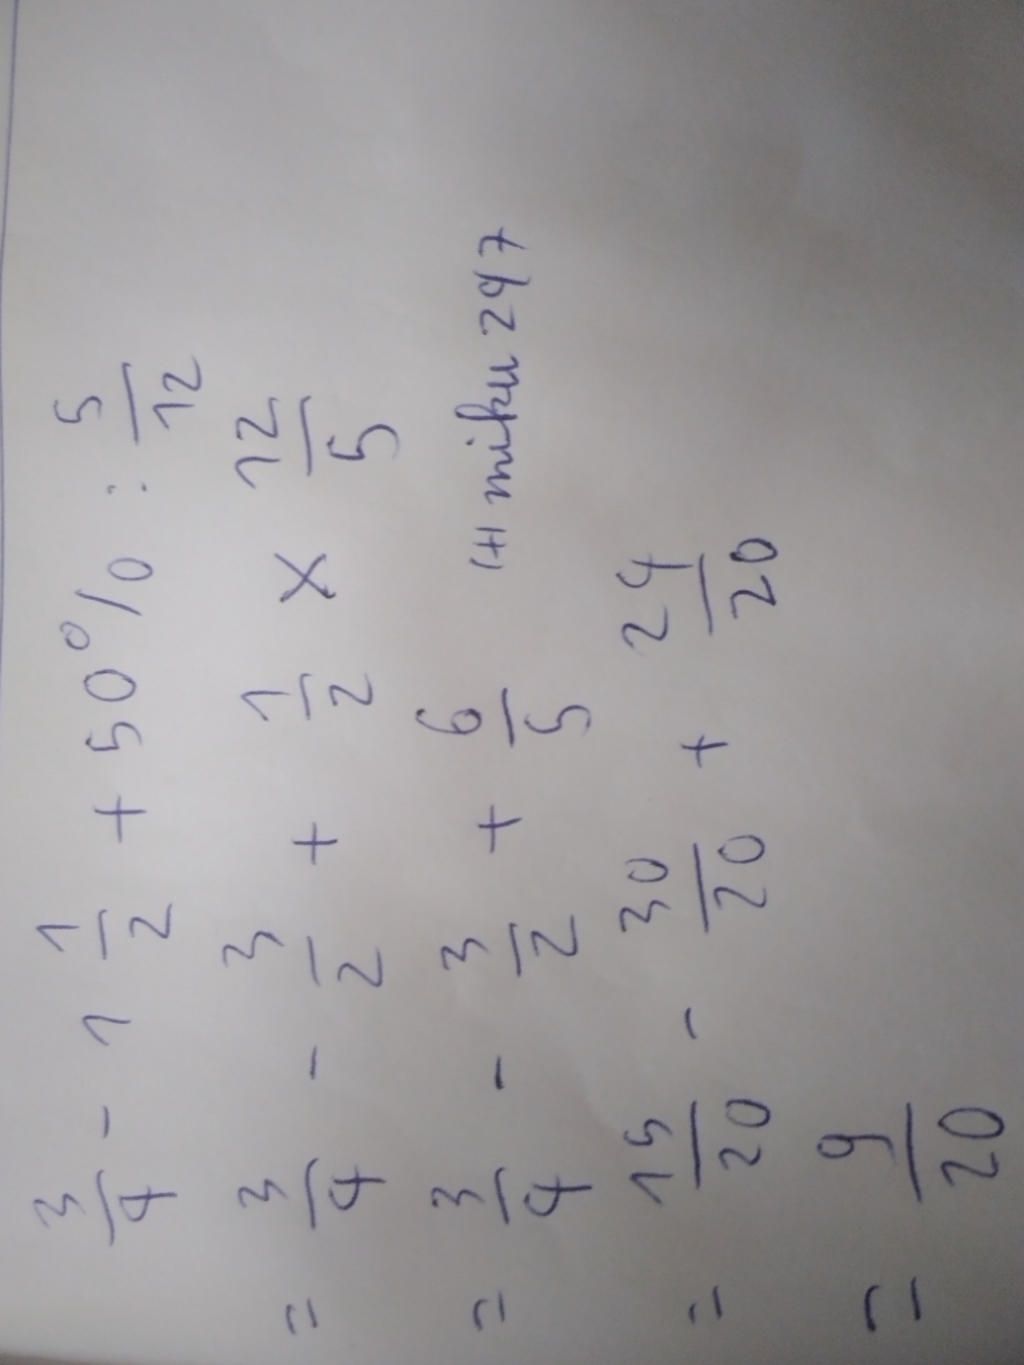 3/4 - 1 1/2 + 50% : 5/12
= 3/4 - 3/2 + 1/2 x 12/5
= 3/4 - 3/2 + 6/5
= 15/20 - 30/20 + 24/20
= 9/20